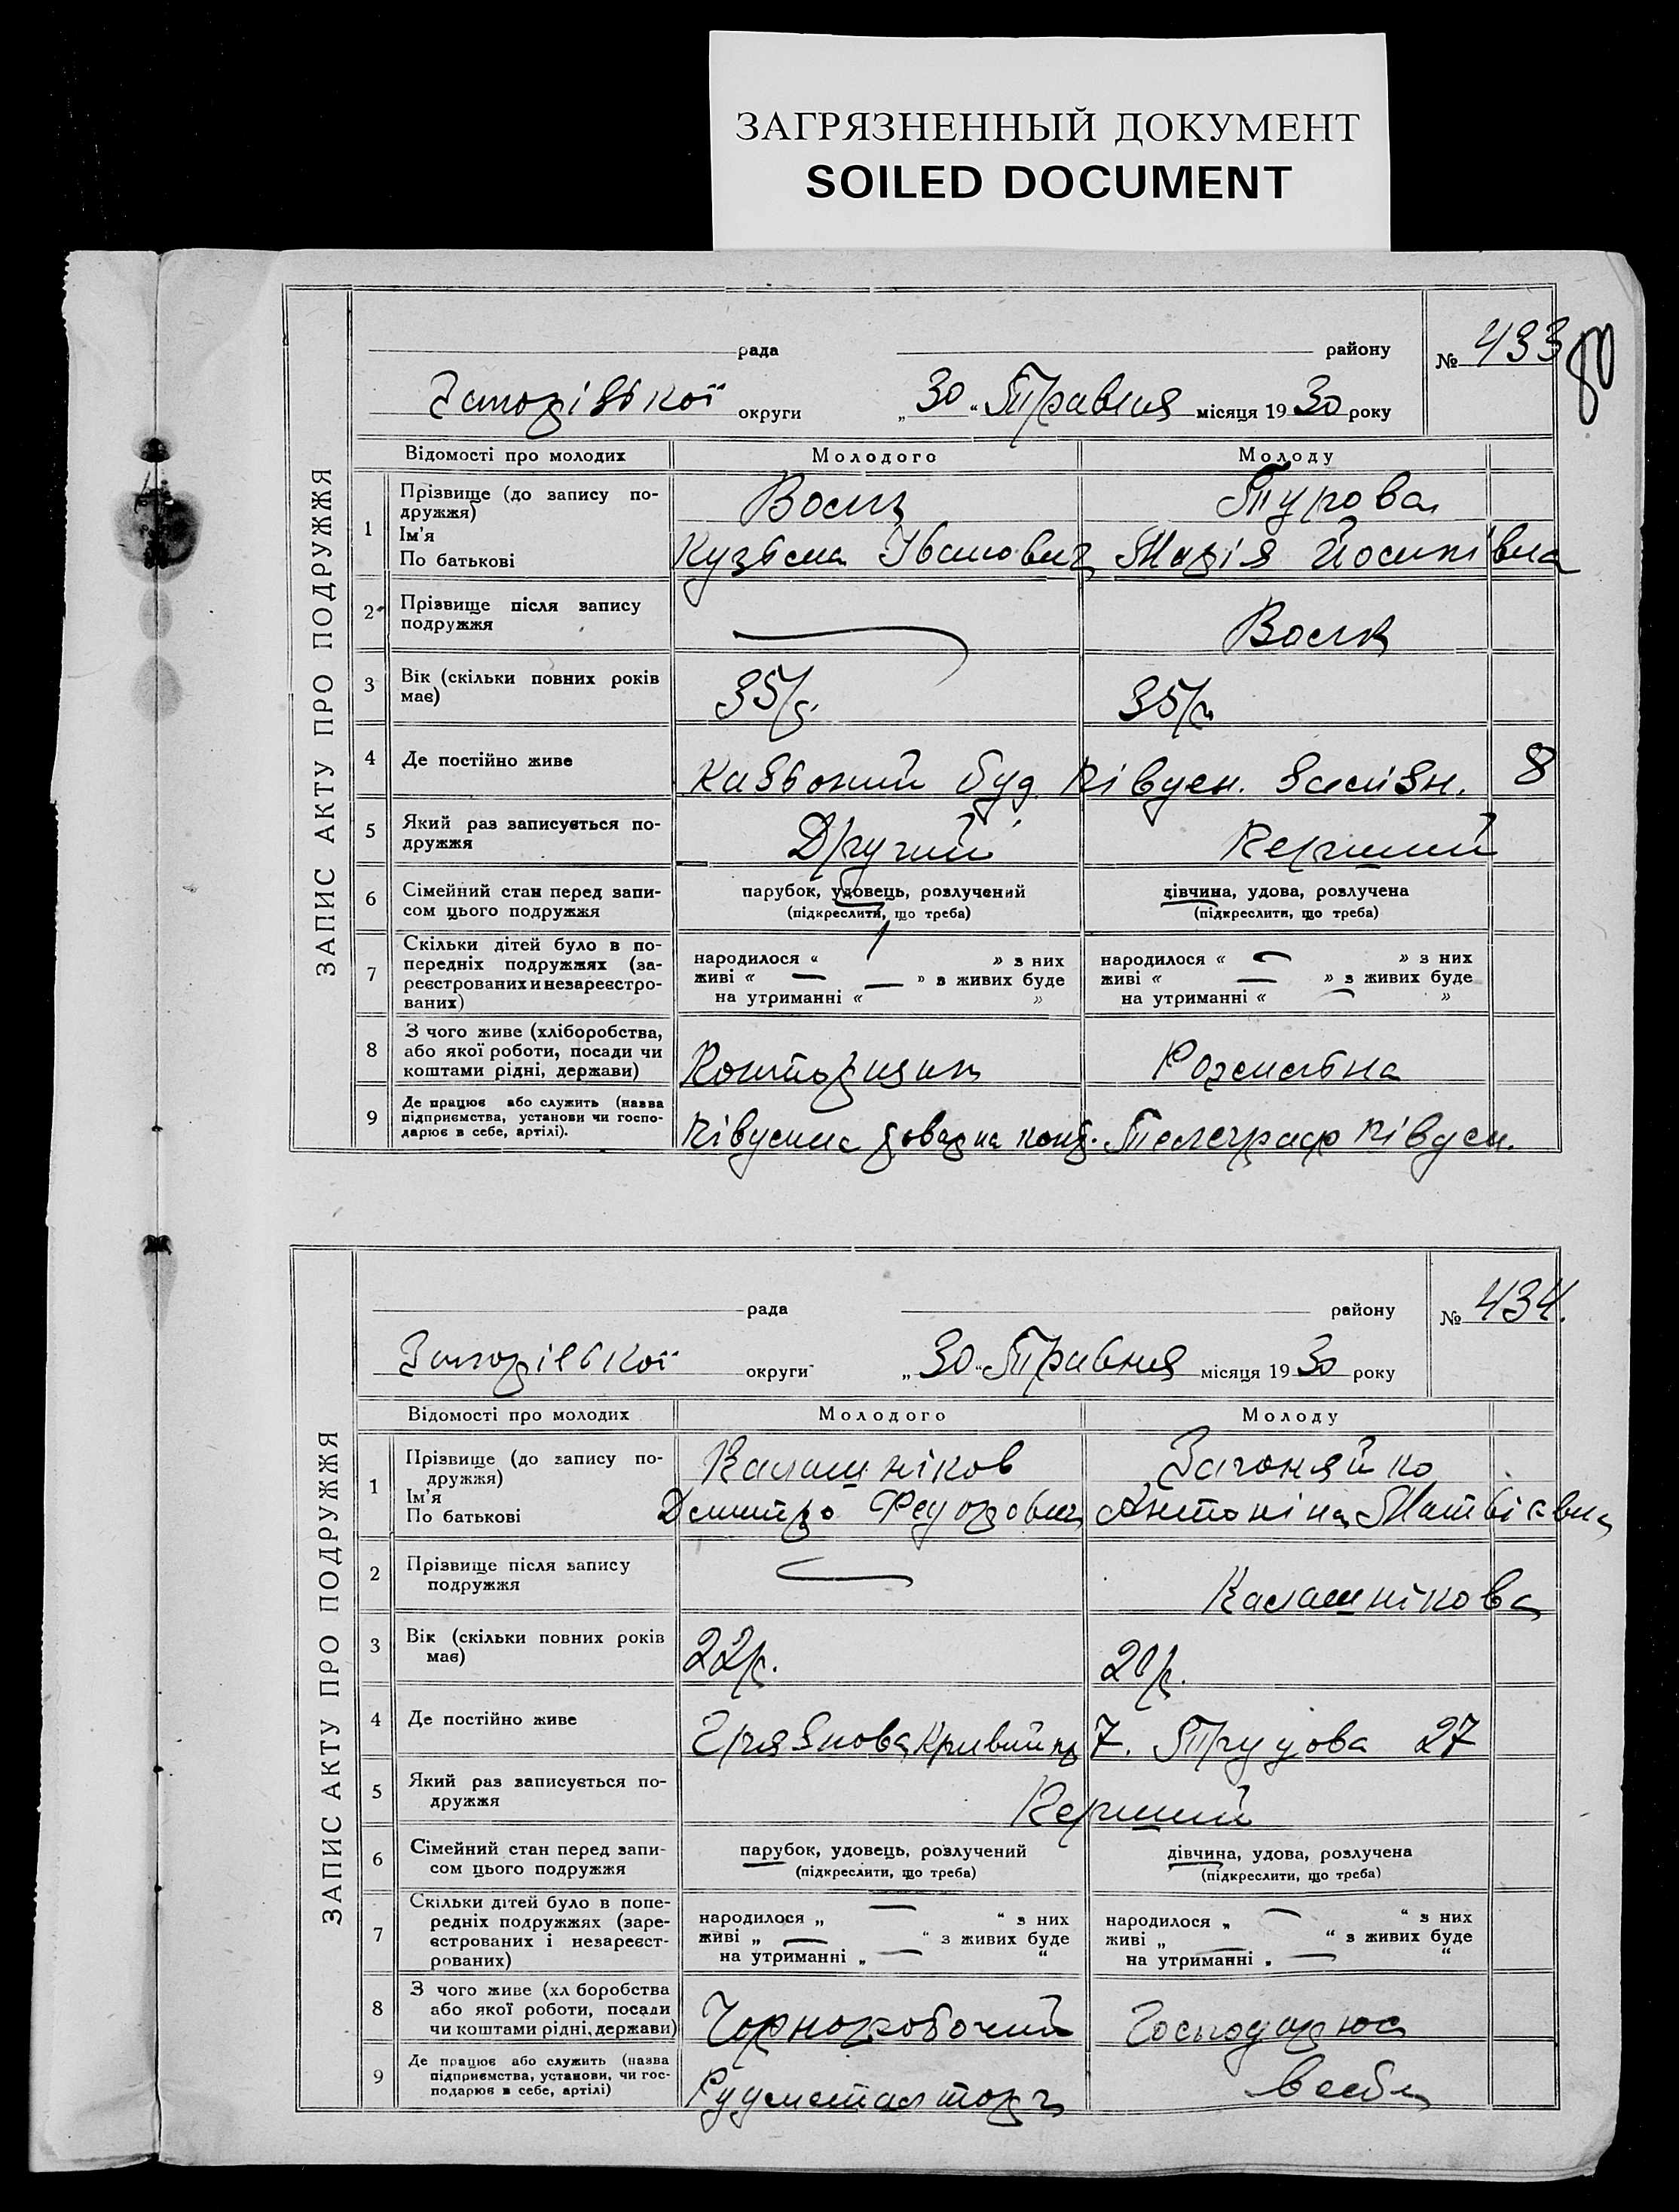 ЗАГРЯЗНЕННЫЙ ДОКУМЕНТ
SOILED DOCUMENT
80
ЗАПИС АКТУ ПРО ПОДРУЖЖЯ
рада району № 433
округи „30“ Травня місяця 1930 року
Відомості про молодих Молодого Молоду
1 Прізвище (до запису по-
дружжя)
Ім'я
По батькові
Турова
Кузьма Іванович Марія Йосипівна
2 Прізвище після запису
подружжя
Вовк
3 Вік (скільки повних років
має)
35/р. 35/р
4 Де постійно живе
буд. Півден. Залізн. 8
5 Який раз записується по-
дружжя
Другий Перший
6 Сімейний стан перед запи-
сом цього подружжя
парубок, удовець, розлучений дівчина, удова, розлучена
(підкреслити, що треба) (підкреслити, що треба)
7 Скільки дітей було в по-
передніх подружжях (за-
реєстрованих и незареєстро-
ваних)
народилося « — » з них народилося « — » з них
живі « — » з живих буде живі « — » з живих буде
на утриманні « — » на утриманні « — »
8 З чого живе (хліборобства,
або якої роботи, посади чи
коштами рідні, держави)
Конторщик
9 Де працює або служить (назва
підприємства, установи чи госпо-
дарює в себе, артілі).
Південна товарна конт. Телеграф Півден.
ЗАПИС АКТУ ПРО ПОДРУЖЖЯ
рада району № 434.
округи „30“ Травня місяця 1930 року
Відомості про молодих Молодого Молоду
1 Прізвище (до запису по-
дружжя)
Ім'я
По батькові
Калашніков Загоняйко
Дмитро Федорович Антоніна Матвієвна
2 Прізвище після запису
подружжя
Калашнікова
3 Вік (скільки повних років
має)
22/р. 20/р.
4 Де постійно живе
Грязнова Кривий пр 7. Трудова 27
5 Який раз записується по-
дружжя
Перший
6 Сімейний стан перед запи-
сом цього подружжя
парубок, удовець, розлучений дівчина, удова, розлучена
(підкреслити, що треба) (підкреслити, що треба)
7 Скільки дітей було в попе-
редніх подружжях (заре-
єстрованих і незареєст-
рованих)
народилося „ — “ з них народилося „ — “ з них
живі „ — “ з живих буде живі „ — “ з живих буде
на утриманні „ — “ на утриманні „ — “
8 З чого живе (хл боробства
або якої роботи, посади
чи коштами рідні, держави)
Чорноробочий Господарює
9 Де працює або служить (назва
підприємства, установи, чи гос-
подарює в себе, артілі)
Рудметалторг в себе